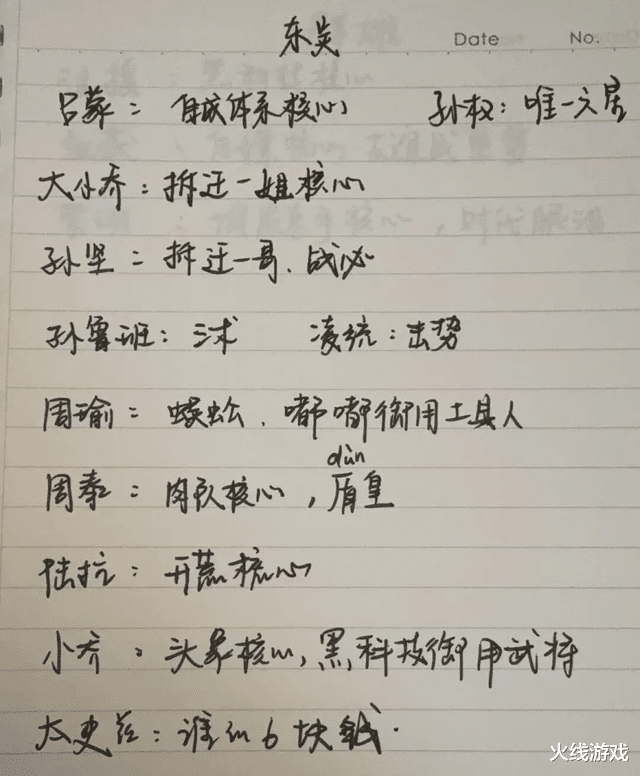 东吴 Date No.
吕蒙：自成体系核心 孙权：唯一六星
大小乔：拆迁一姐核心
孙坚：拆迁一哥、战必
孙鲁班：三术 凌统：击势
周瑜：蜈蚣、嘟嘟御用工具人
dùn
周泰：肉队核心，盾皇
陆抗：开荒核心
小乔：头象核心，黑科技御用武将
太史慈：谁的6块钱.
火线游戏